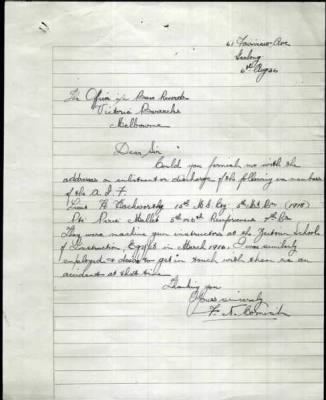 61 Fairview Ave
Geelong
6th Aug 36
The Officer i/c Base Records
Victoria Barracks
Melbourne
Dear Sir
Could you furnish me with the
addresses on enlistment or discharge of the following ex members
of the A.I.F.
Lieut 10th M.G. Coy 4th Bn (1918)
Pte Mallet 5th Reinforcements 7th Bn
They were machine gun instructors at the Zeitoun School
of Instruction, Egypt in March 1916. I was similarly
employed & desire to get in touch with them re an
accident at that time
Thanking you
Yours sincerely
F. N. Cornish